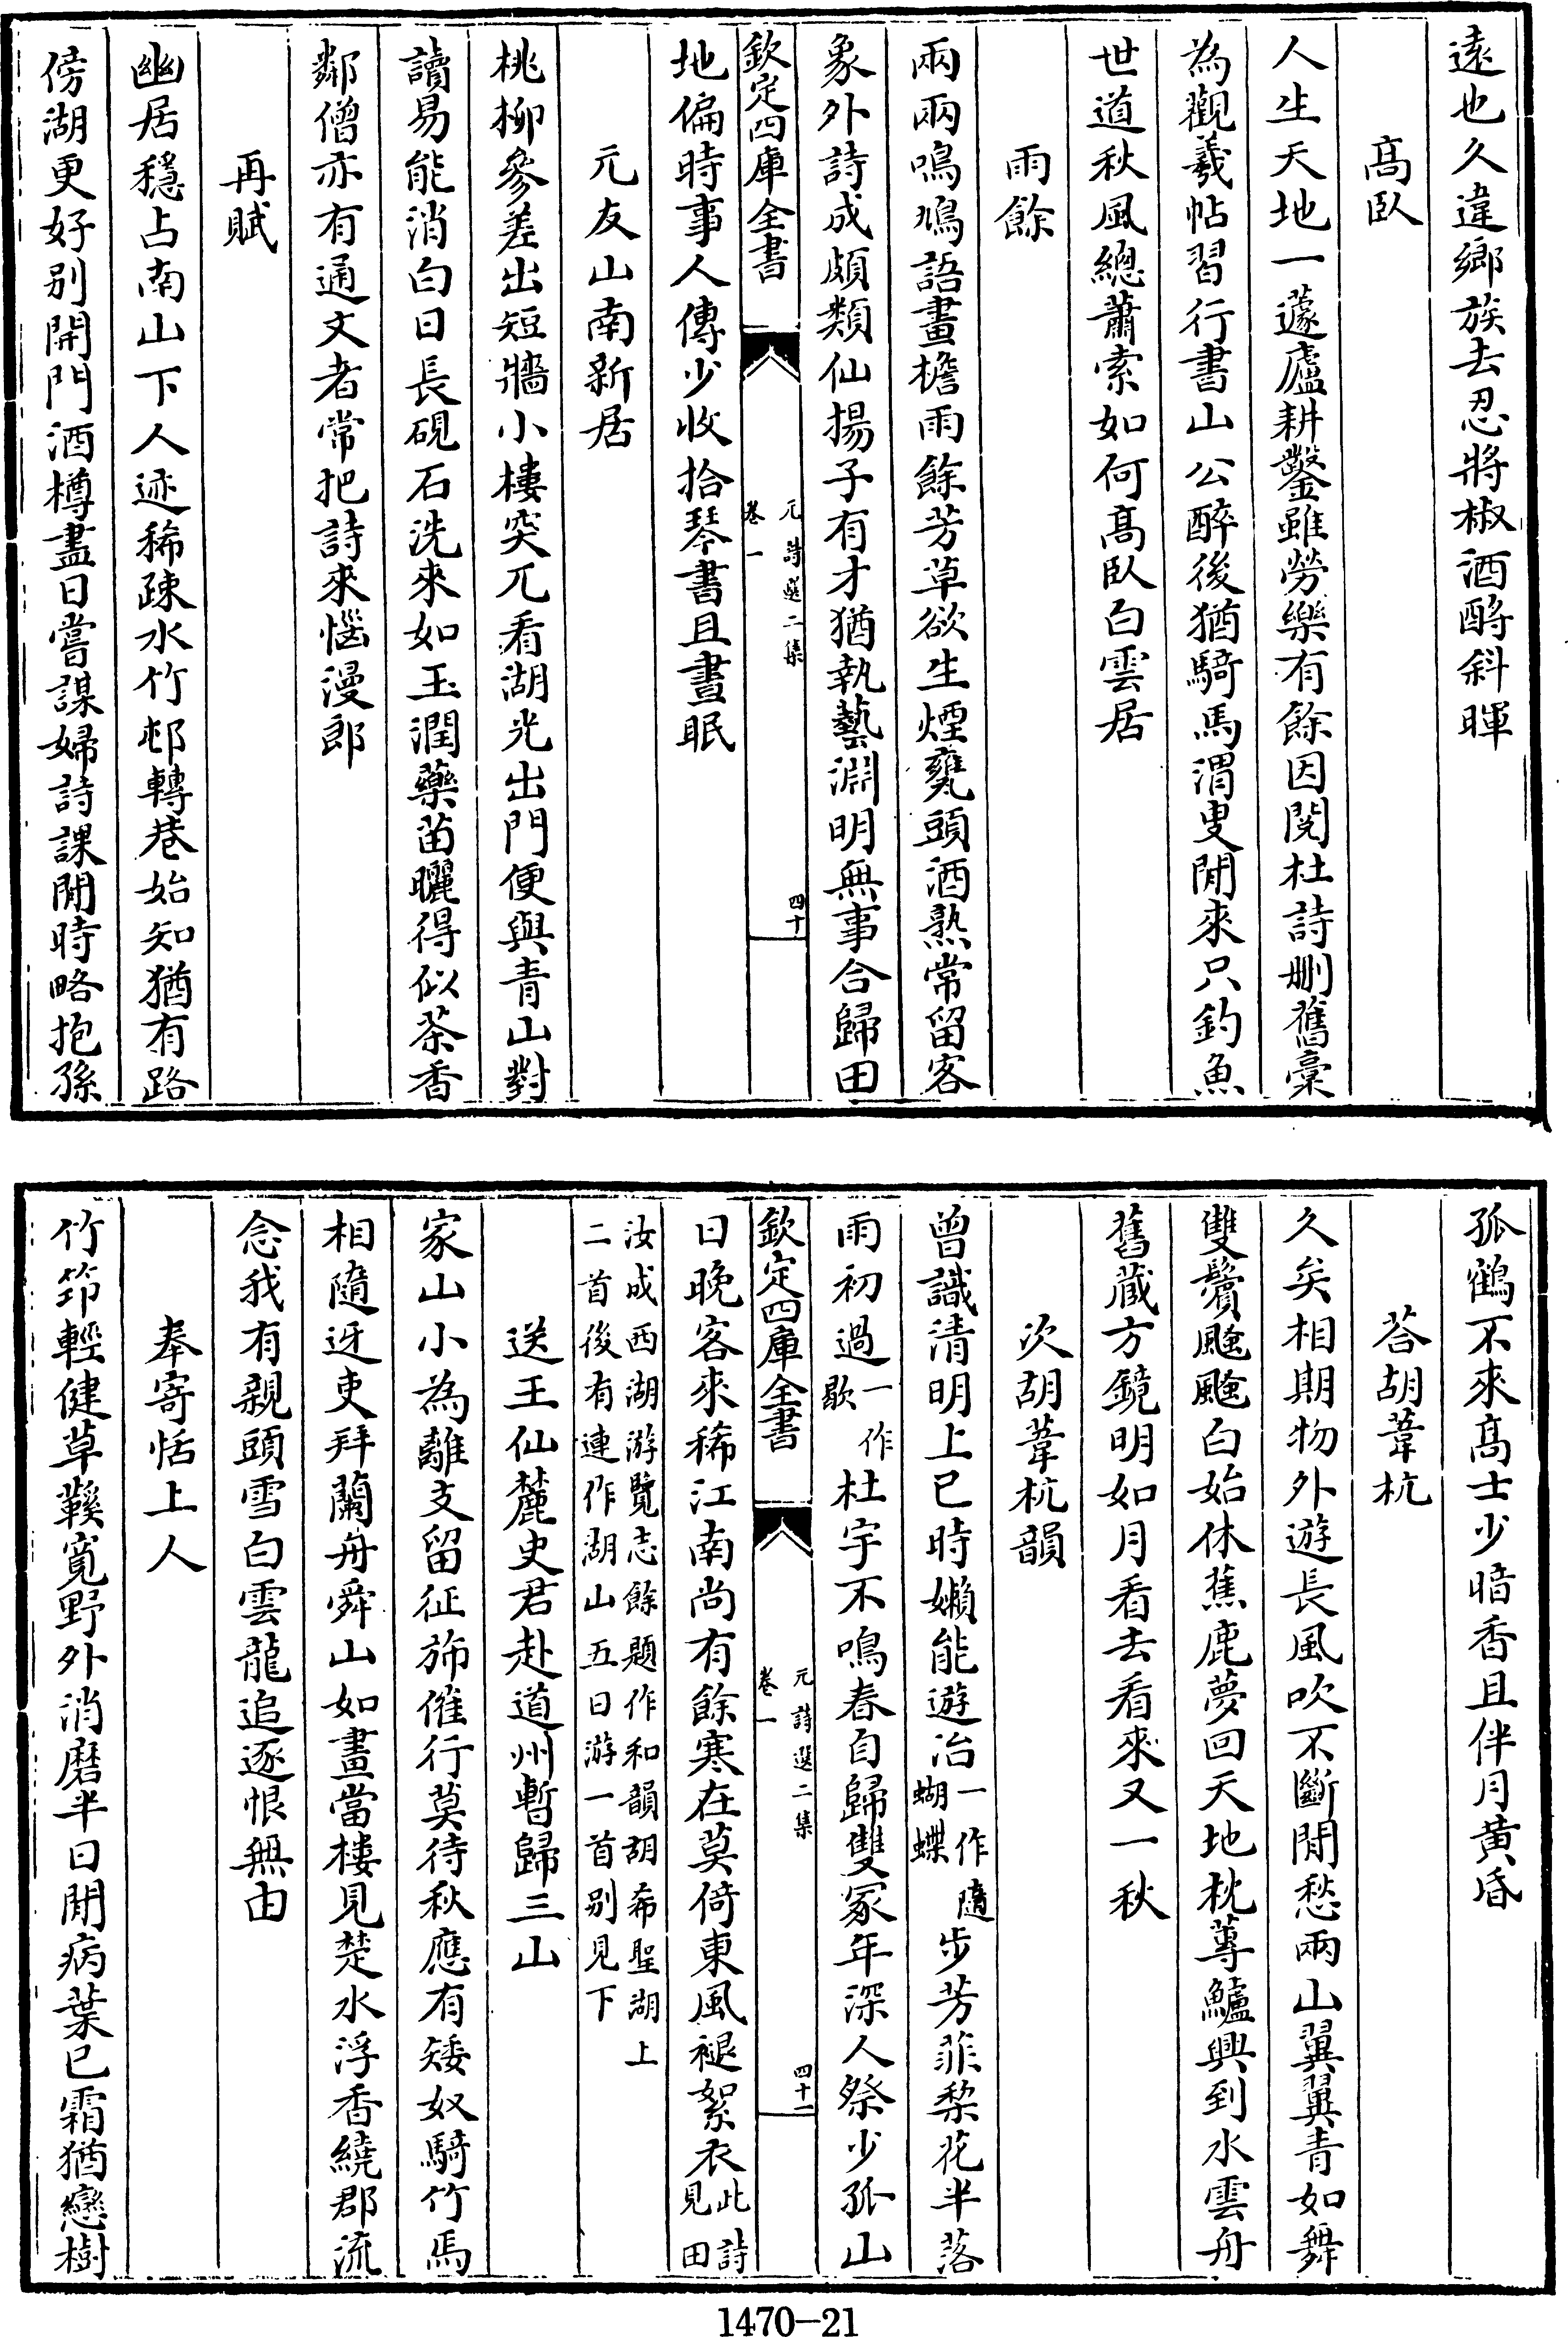 遠也久違鄉族去忍將椒酒酹斜暉
髙臥
人生天地一蘧廬耕鑿雖勞樂有餘因閱杜詩刪舊稾
為觀羲帖習行書山公醉後猶騎馬渭叟閒來只釣魚
世道秋風總蕭索如何髙臥白雲居
雨餘
兩兩鳴鳩語畫檐雨餘芳草欲生煙甕頭酒熟常留客
象外詩成頗類仙揚子有才猶執藝淵明無事合歸田
欽定四庫全書
元詩選二集
卷一
四十
地偏時事人傳少收拾琴書且晝眠
元友山南新居
桃柳參差出短牆小樓突兀看湖光出門便與青山對
讀易能消白日長硯石洗來如玉潤藥苗曬得似茶香
鄰僧亦有通文者常把詩來惱漫郎
再賦
幽居穩占南山下人迹稀疎水竹邨轉巷始知猶有路
傍湖更好别開門酒樽盡日嘗謀婦詩課閒時略抱孫
孤鶴不來髙士少暗香且伴月黄昏
荅胡葦杭
久矣相期物外遊長風吹不斷閒愁兩山翼翼青如舞
雙鬢颼颼白始休蕉鹿夢回天地枕蓴鱸興到水雲舟
舊藏方鏡明如月看去看來又一秋
次胡葦杭韻
曾識清明上巳時嬾能遊冶一作蝴蝶隨步芳菲梨花半落
雨初過一作歇杜宇不鳴春自歸雙冢年深人祭少孤山
欽定四庫全書
元詩選二集
卷一
四十一
日晚客來稀江南尚有餘寒在莫倚東風褪絮衣此詩見田
汝成西湖游覽志餘題作和韻胡希聖湖上
二首後有連作湖山五日游一首别見下
送王仙麓史君赴道州暫歸三山
家山小為離支留征斾催行莫待秋應有矮奴騎竹馬
相隨迓吏拜蘭舟舜山如畫當樓見楚水浮香繞郡流
念我有親頭雪白雲龍追逐恨無由
奉寄恬上人
竹笻輕健草鞵寛野外消磨半日閒病葉已霜猶戀樹
1470-21